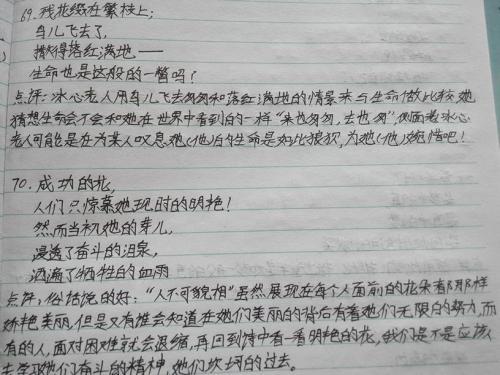 69. 残花缀在繁枝上;
鸟儿飞去了,
撒得落红满地——
生命也是这般的一瞥吗?
点评:冰心老人用鸟儿飞去匆匆和落红满地的情景来与生命做比较,她
猜想生命会不会和她在世界中看到的一样“来也匆匆,去也匆”,侧面老冰心
老人可能是在为某人叹息她(他)的生命是如此狼狈,为她(他)惋惜吧!
70. 成功的花,
人们只惊慕她现时的明艳!
然而当初她的芽儿,
浸透了奋斗的泪泉,
洒遍了牺牲的血雨
点评:俗话说的好:“人不可貌相”虽然展现在每个人面前的花朵有那那样
娇艳美丽,但是又有谁会知道在她们美丽的背后有着她们无限的努力,而
有的人,面对困难就会退缩,再回到诗中看一看明艳的花,我们是不是应该
去学习她们奋斗的精神,她们坎坷的过去。